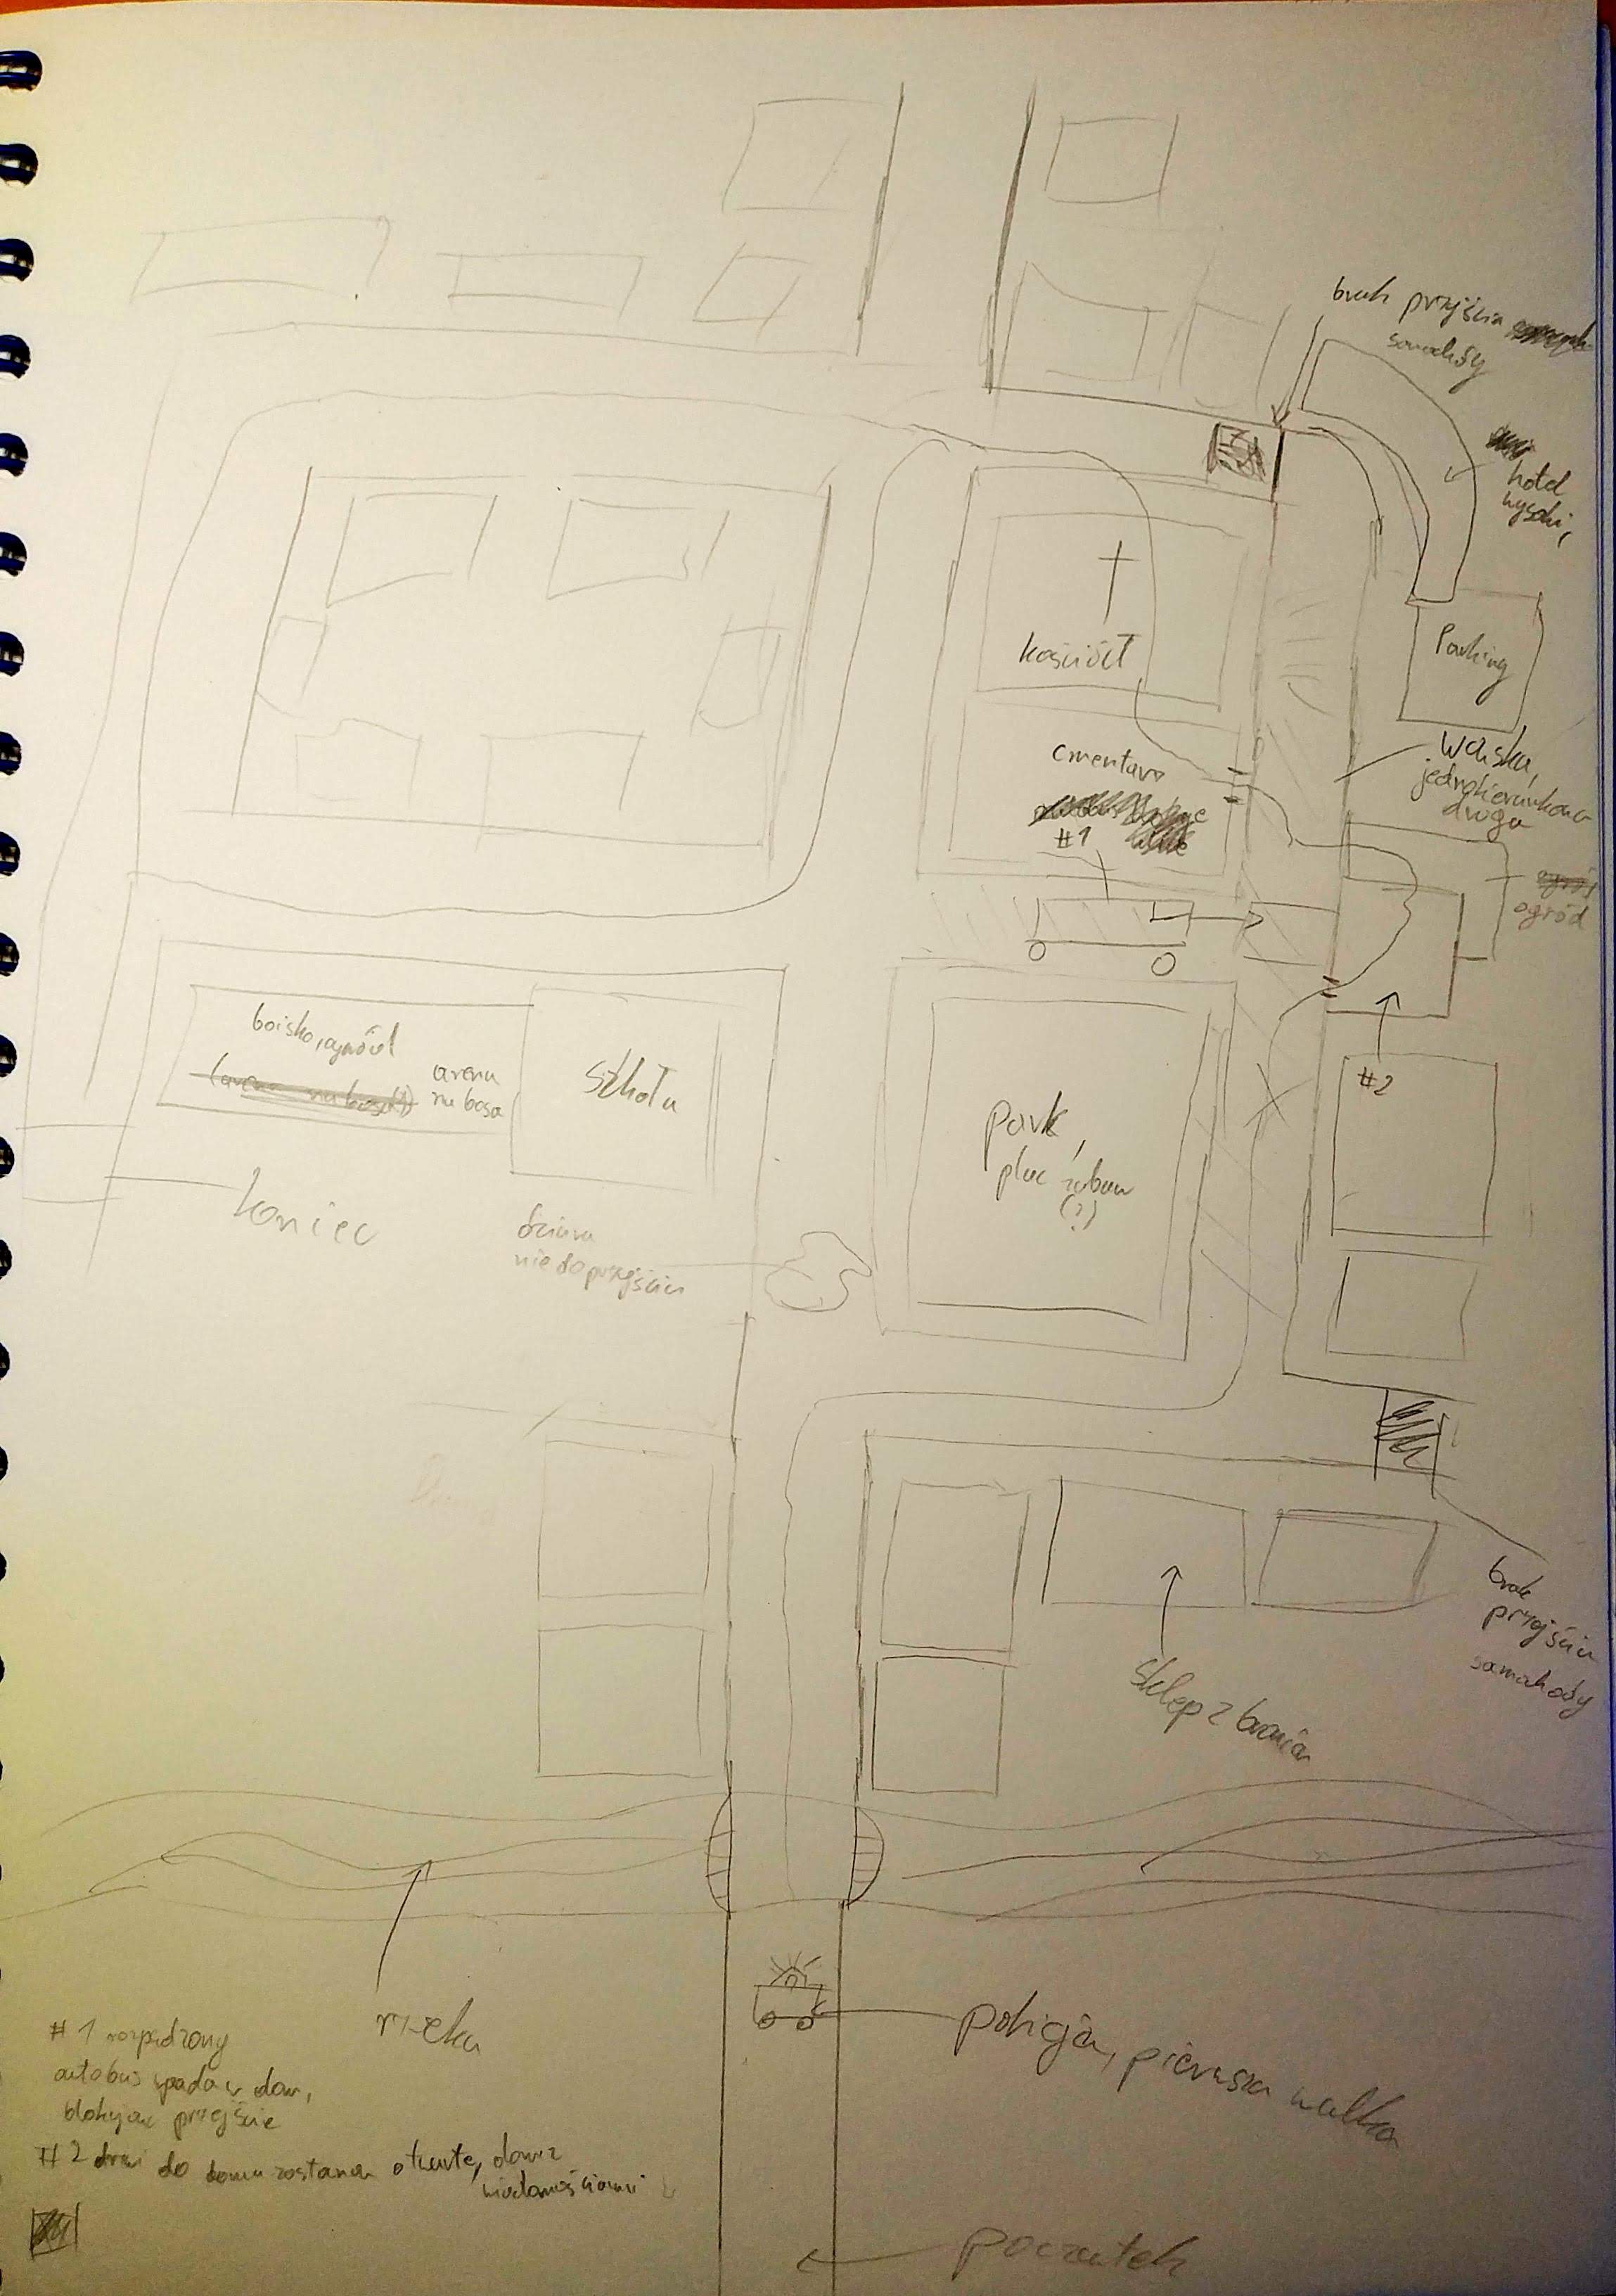 brak przejścia
samochody
hotel
wysoki,
Parking
kościół
wąska,
jednokierunkowa
droga
cmentarz
#1
ogród
boisko,
arena
na bosa
szkoła
#2
park,
plac zabaw
(?)
koniec
ściana
nie do przejścia
brak
przejścia
samochody
sklep z bronią
rzeka
policja, pierwsza walka
#1 rozpędzony
autobus wpada w dom,
blokując przejście
#2 drzwi do domu zostaną otwarte,
początek